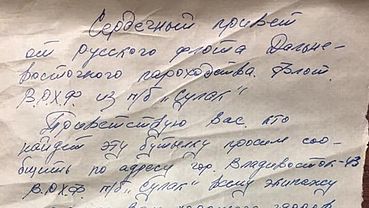 Сердечный привет
от русского флота Дальне-
восточного пароходства. Флот.
В.Р.Х.Ф. из п/б „Сулак“
Приветствую вас, кто
найдет эту бутылку просим соо-
бщить по адресу гор. Владивосток-43
В.Р.Х.Ф. п/б „Сулак“ всему экипажу